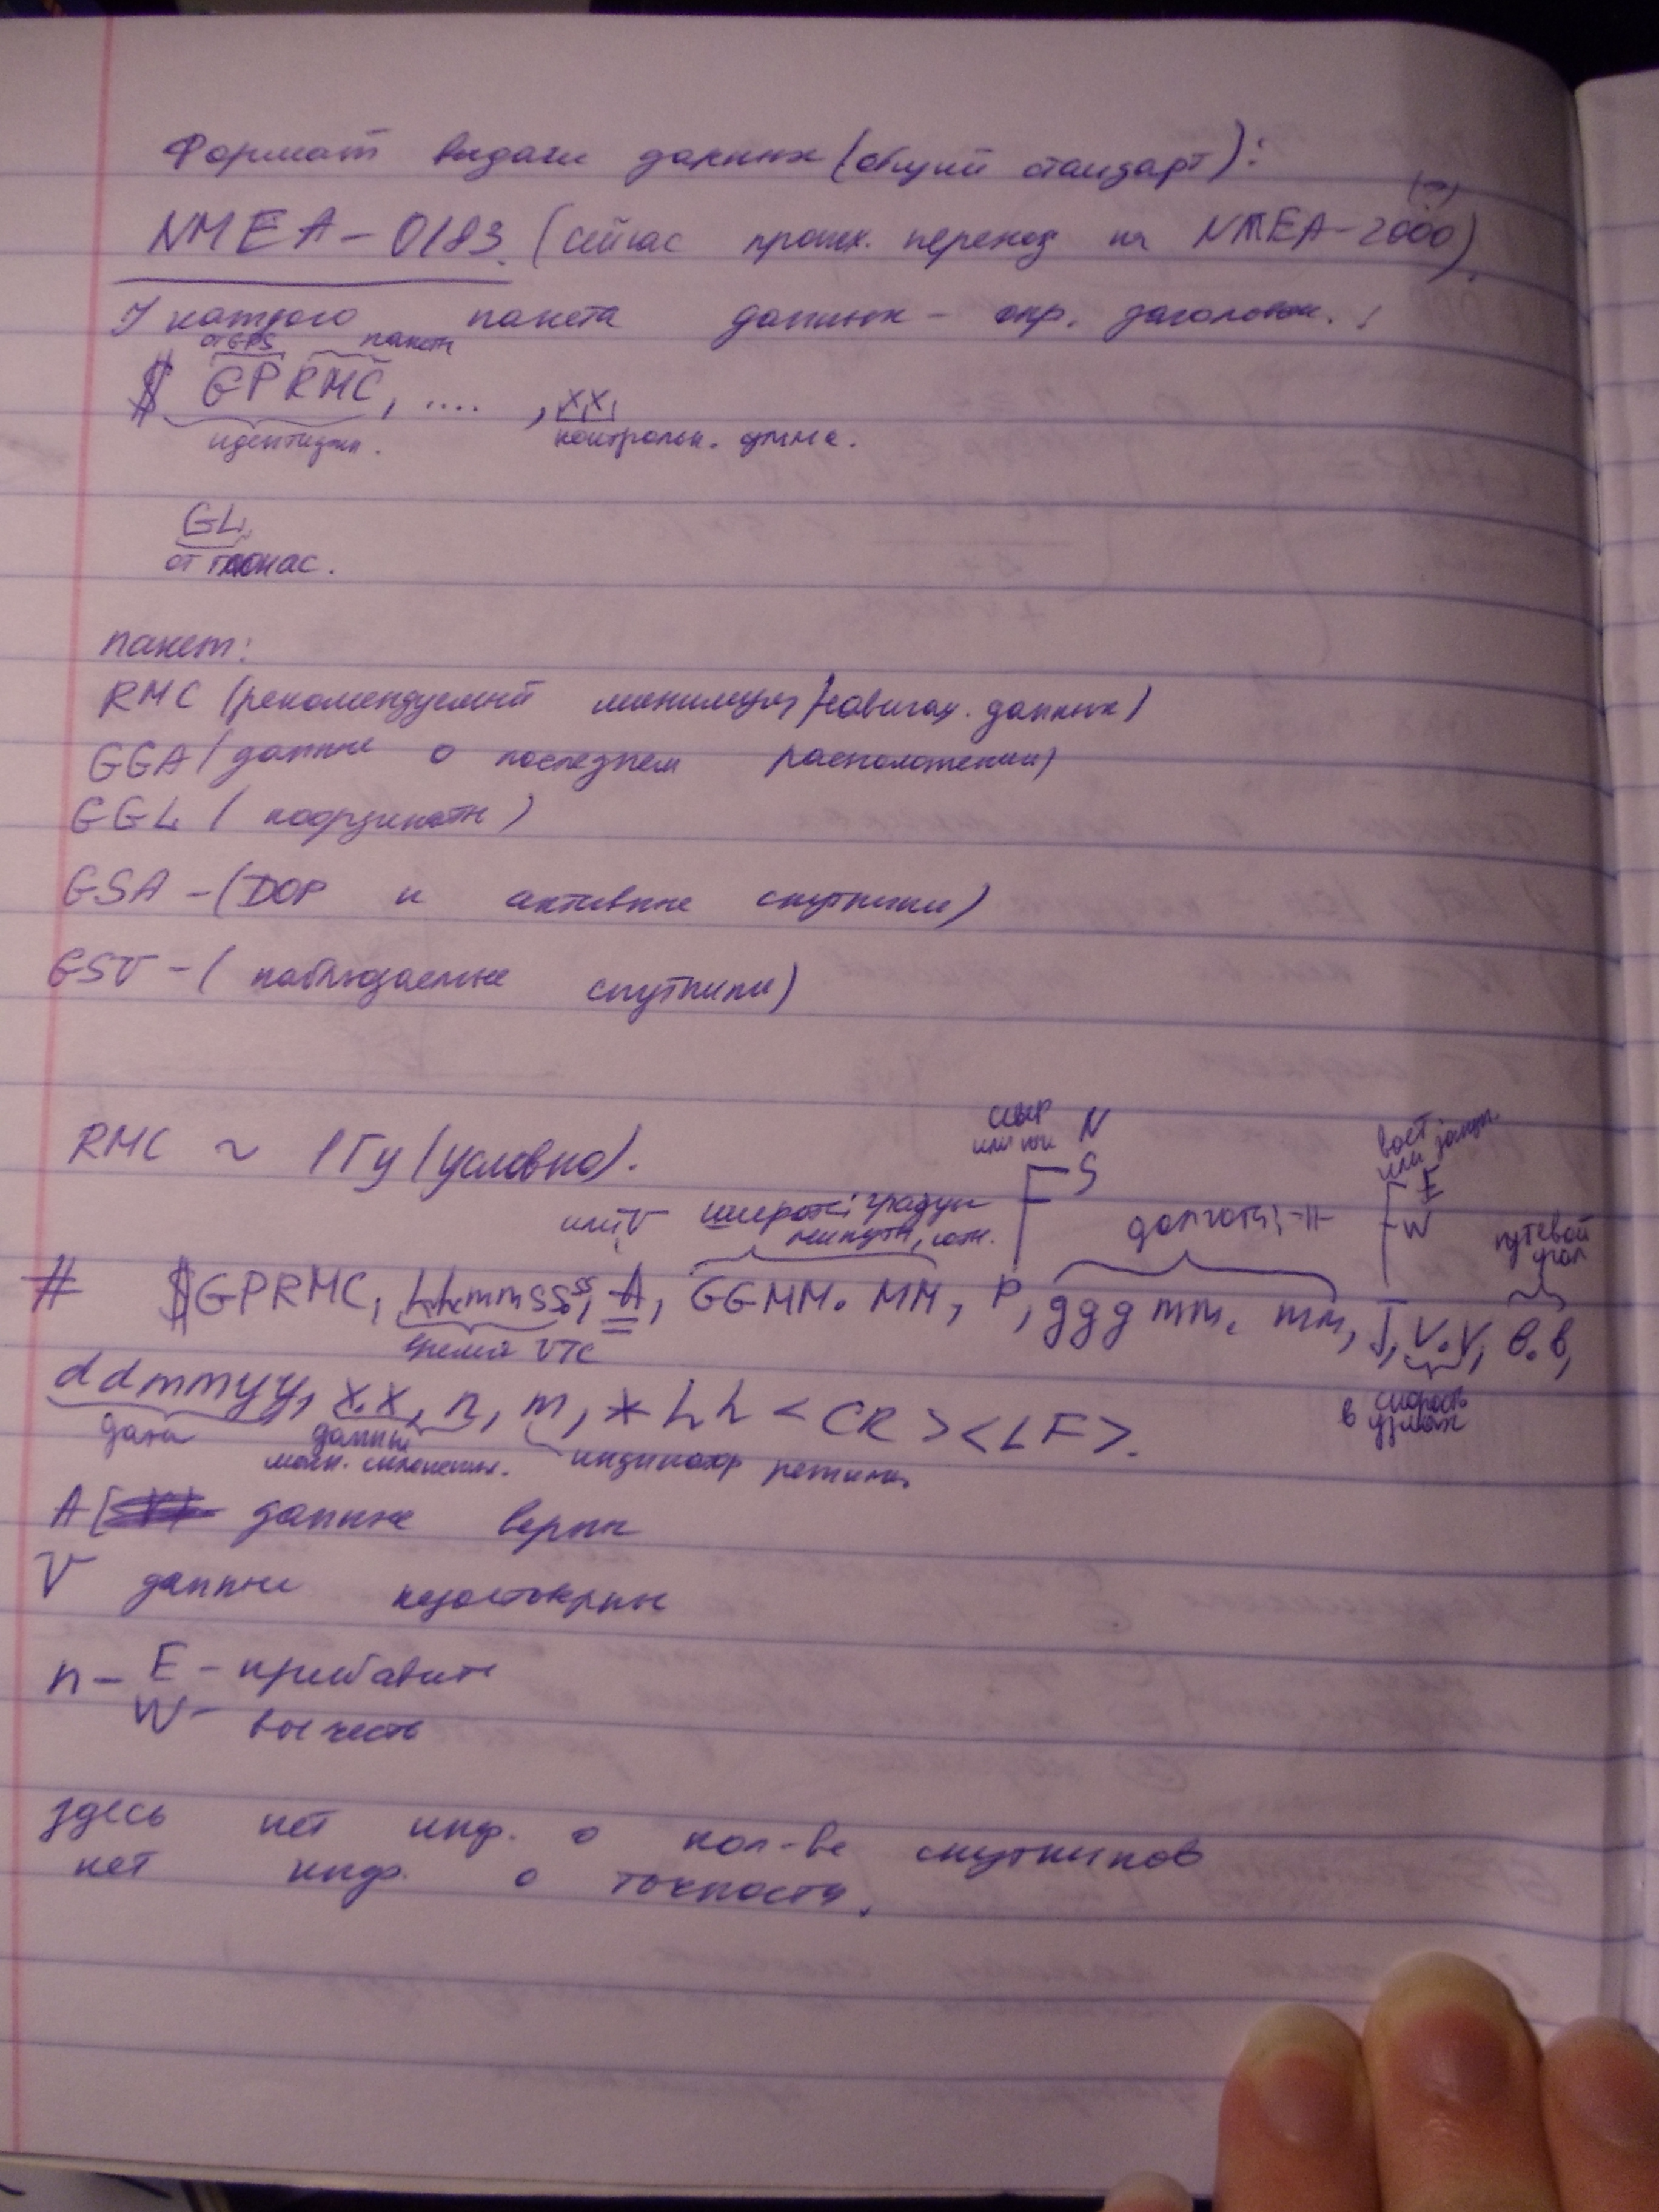 Формат выдачи данных (общий стандарт):
(→)
NMEA-0183. (сейчас происх. переход на NMEA-2000).
У каждого пакета данных - опр. заголовок.
от GPS пакет
$ GPRMC, .... , xx,
идентифик. контрольн. сумма.
GL
от глонас.
пакет:
RMC (рекомендуемый минимум навигац. данных)
GGA (данные о последнем расположении)
GGL (координаты)
GSA - (DOP и активные спутники)
GSV - (наблюдаемые спутники)
RMC ~ 1Гц (условно).
север или юг N S
вост или запад. E W
или V широта; градусы минуты, сотн.
долгота; -//-
путевой угол
# $GPRMC, hhmmss.ss, A, GGMM.MM, P, gggmm.mm, J, v.v, b.b,
время UTC
скорость в узлах
ddmmyy, x.x, n, m, *hh <CR><LF>.
дата данные магн. склонения. индикатор режима
A данные верны
V данные недостоверны
n - E - прибавить
W - вычесть
здесь нет инф. о кол-ве спутников
нет инф. о точности.